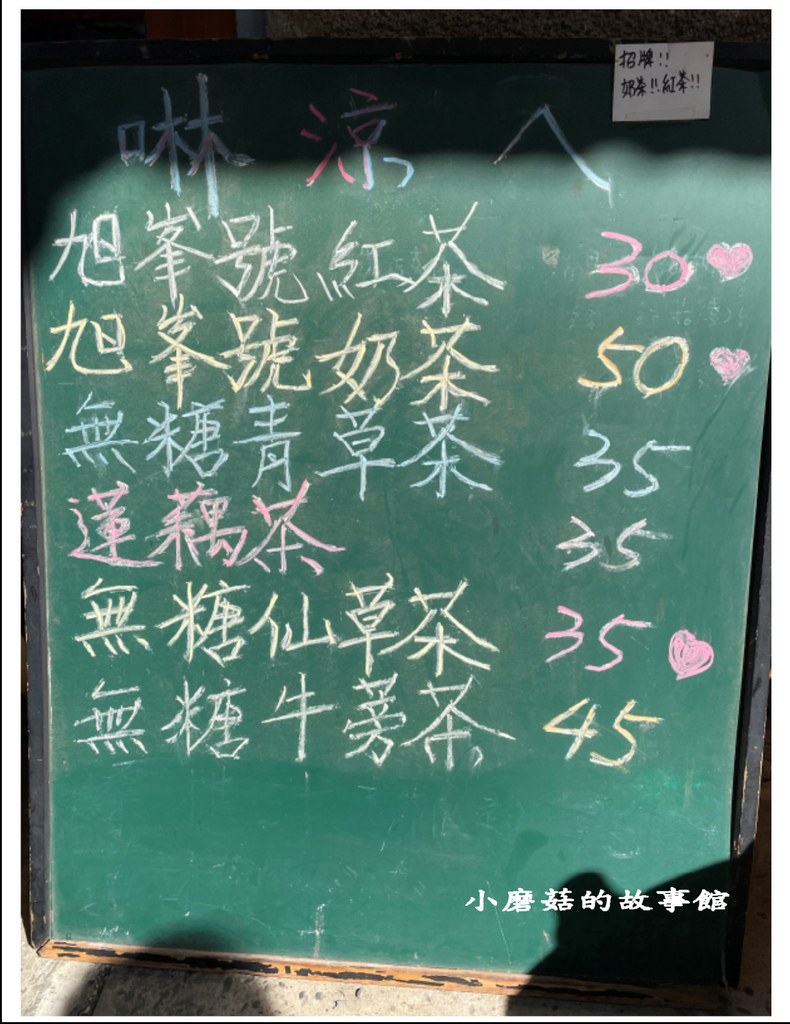 招牌!!
奶茶!!紅茶!!
啉涼ㄟ
旭峯號紅茶 30
旭峯號奶茶 50
無糖青草茶 35
蓮藕茶 35
無糖仙草茶 35
無糖牛蒡茶 45
小磨菇的故事館